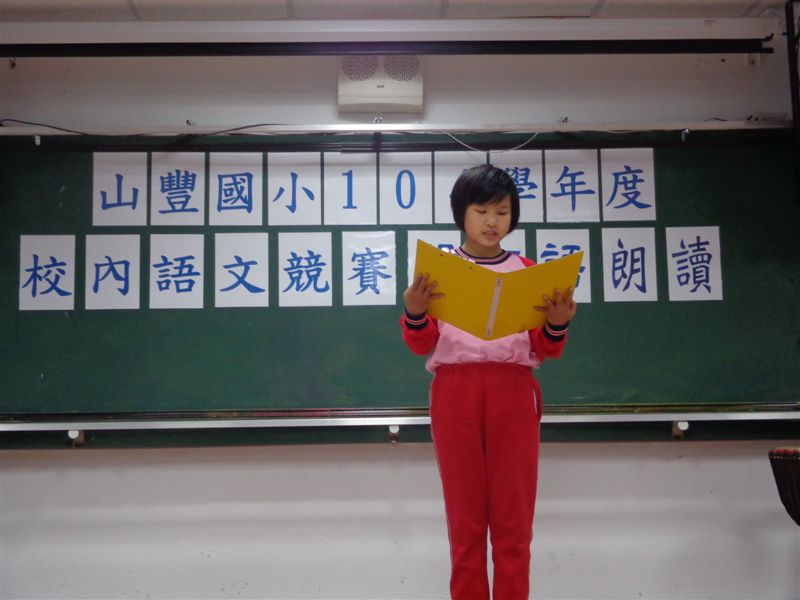 山豐國小10 學年度
校內語文競賽 語朗讀